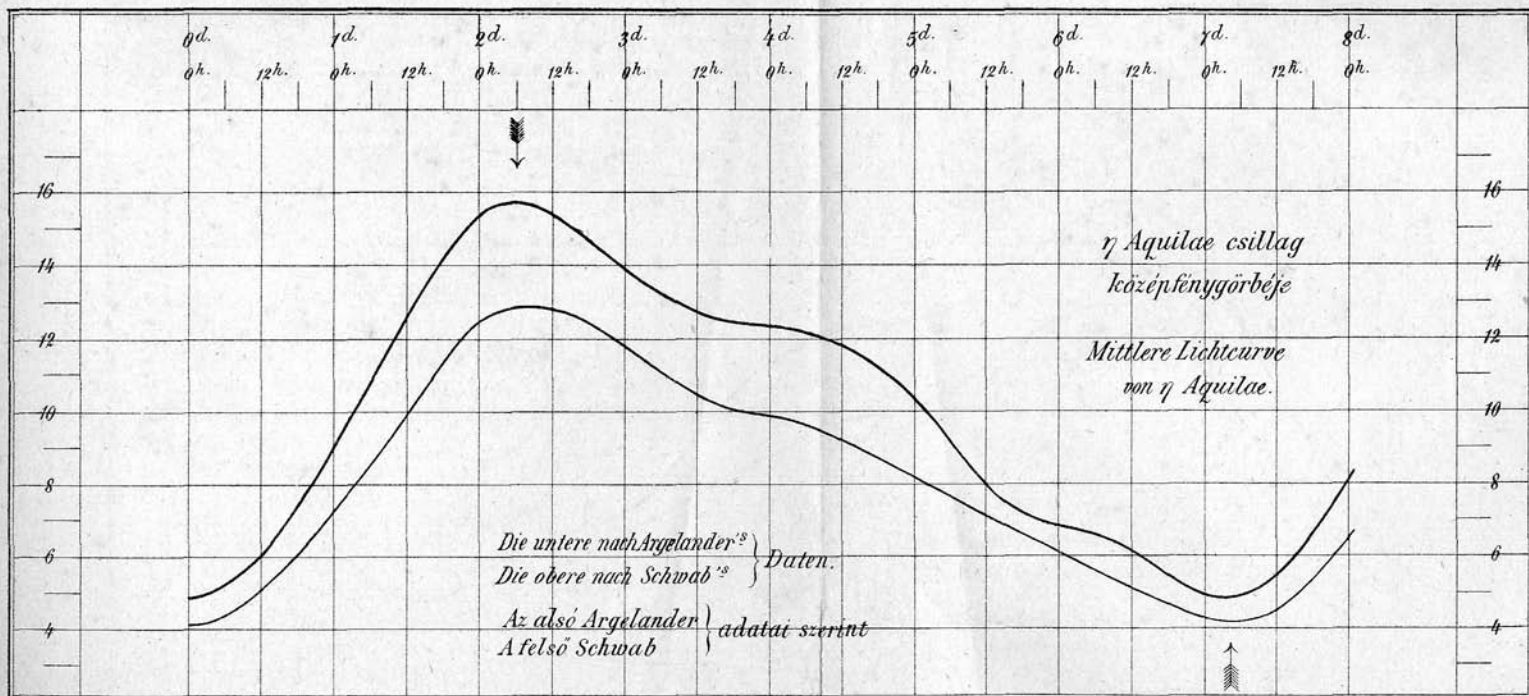 0d. 1d. 2d. 3d. 4d. 5d. 6d. 7d. 8d.
0h. 12h. 0h. 12h. 0h. 12h. 0h. 12h. 0h. 12h. 0h. 12h. 0h. 12h. 0h. 12h. 0h.
16 16
14 14
12 12
10 10
8 8
6 6
4 4
η Aquilae csillag
középfénygörbéje
Mittlere Lichtcurve
von η Aquilae.
Die untere nach Argelander's } Daten.
Die obere nach Schwab's
Az alsó Argelander } adatai szerint
A felső Schwab